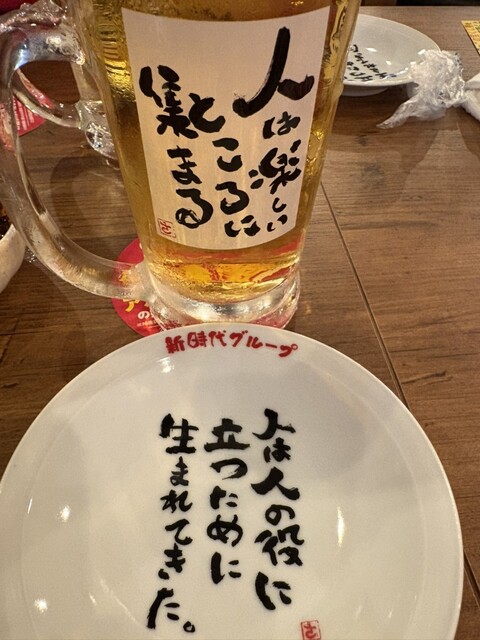 人は楽しい
ところに
集まる
新時代グループ
人は人の役に
立つために
生まれてきた。